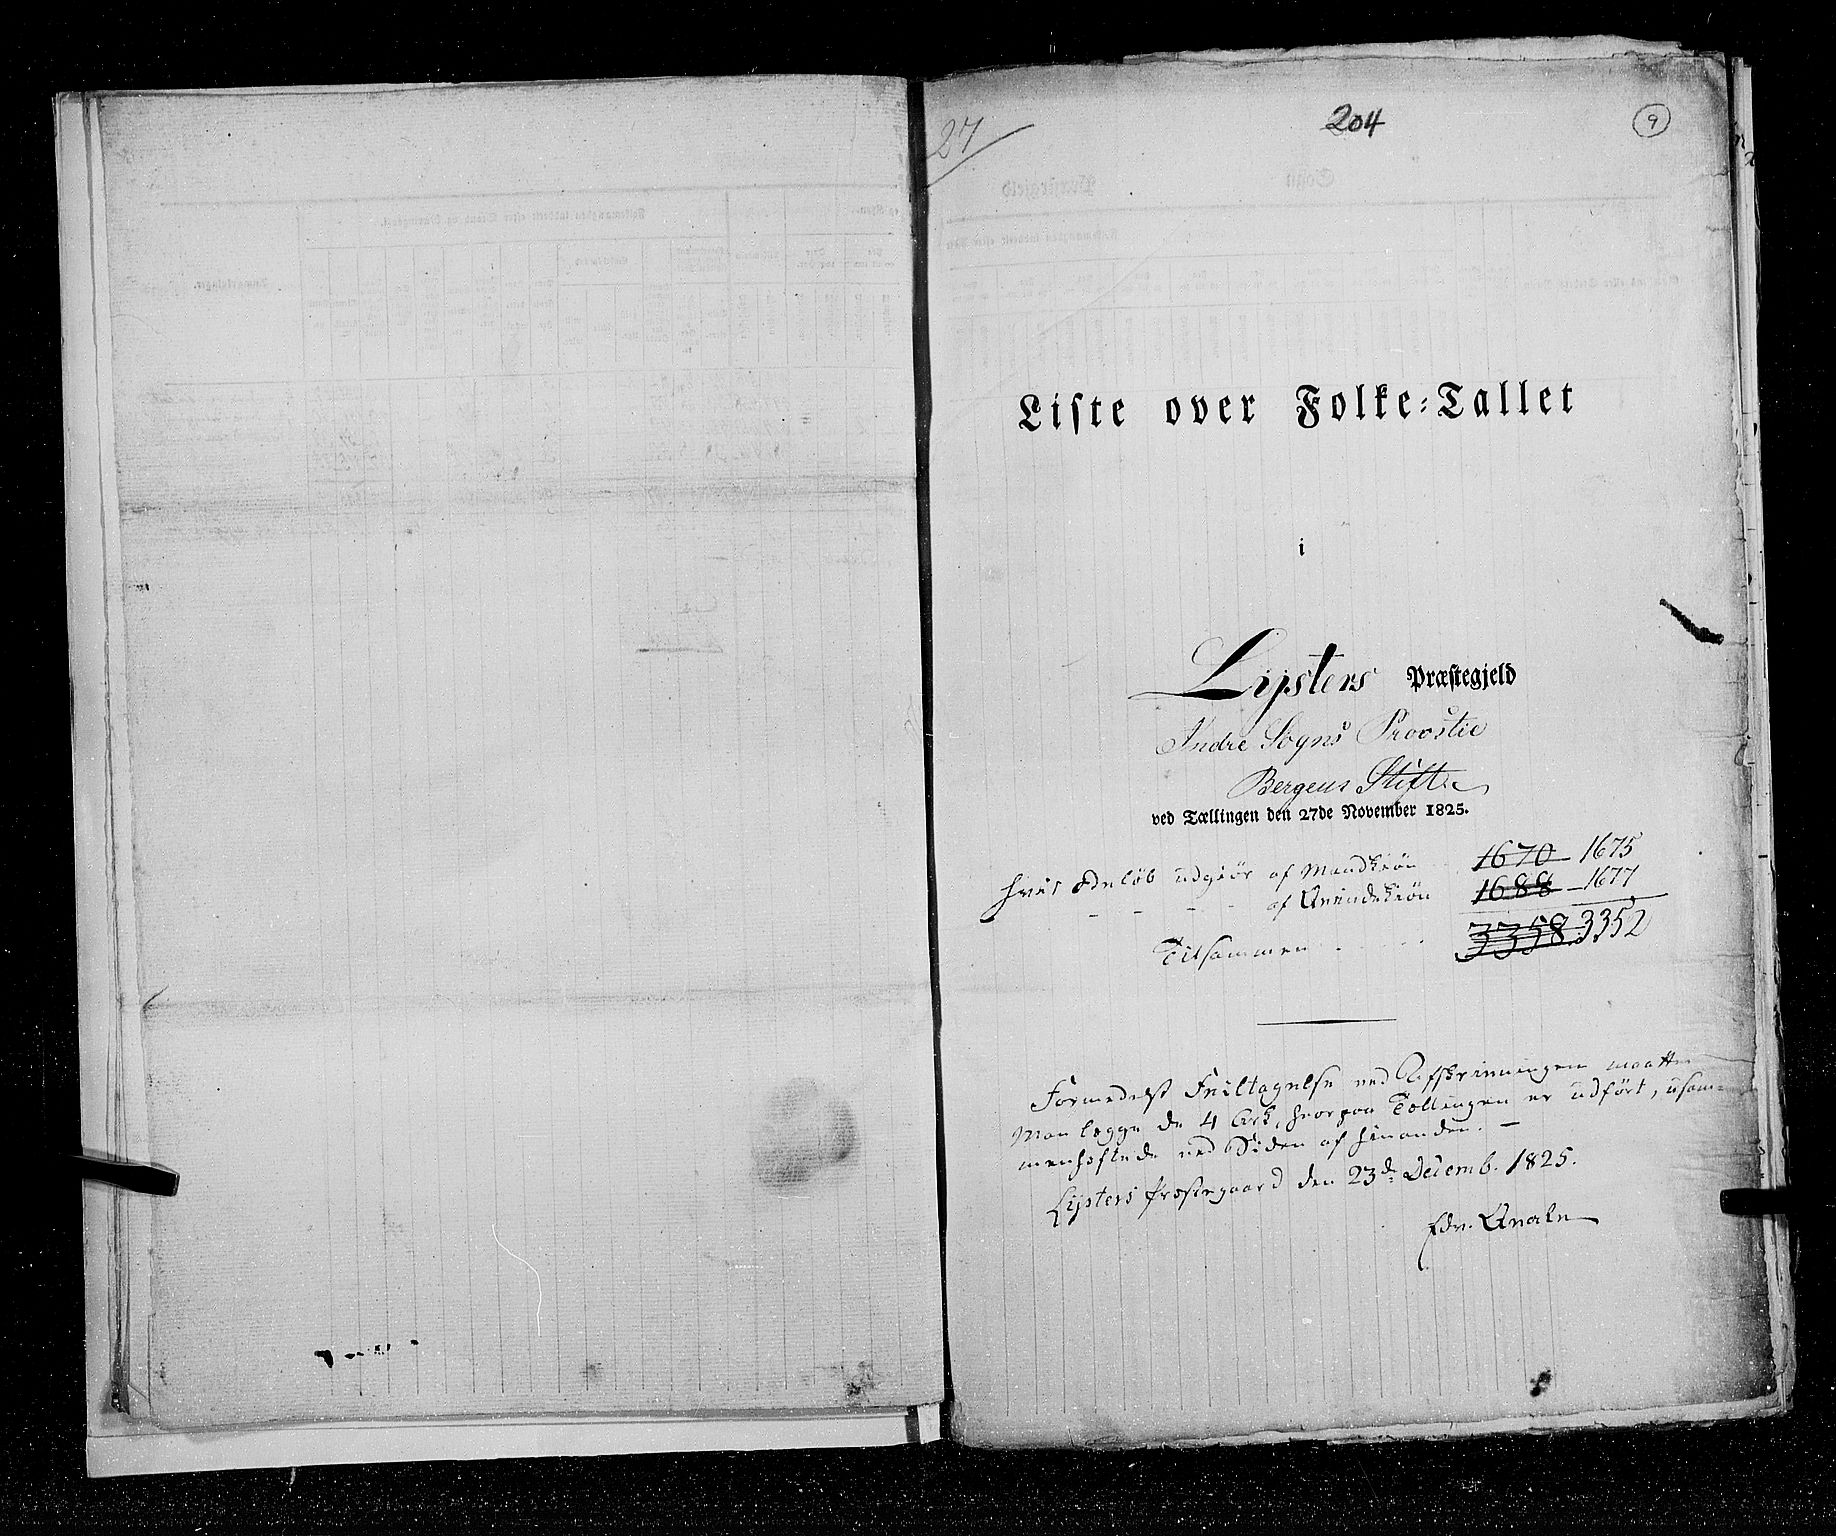 27
204
9
Liste over Folke-Tallet
i
Lysters Præstegjeld
Indre Sogns Provstie
Bergens Stift
ved Tællingen den 27de November 1825.
hvis Beløb udgiør af Mandkiøn 1670 1675
- - - - af Qvindekiøn 1688 1677
Tilsammen - - - 3358 3352
Formedelst Feiltagelse ved Afskrivningen maatte
man lægge de 4 Ark, hvorpaa Tællingen er udført, usam-
menheftede ved Siden af hinanden. -
Lysters Præstegaard den 23de Decemb. 1825.
Qvale